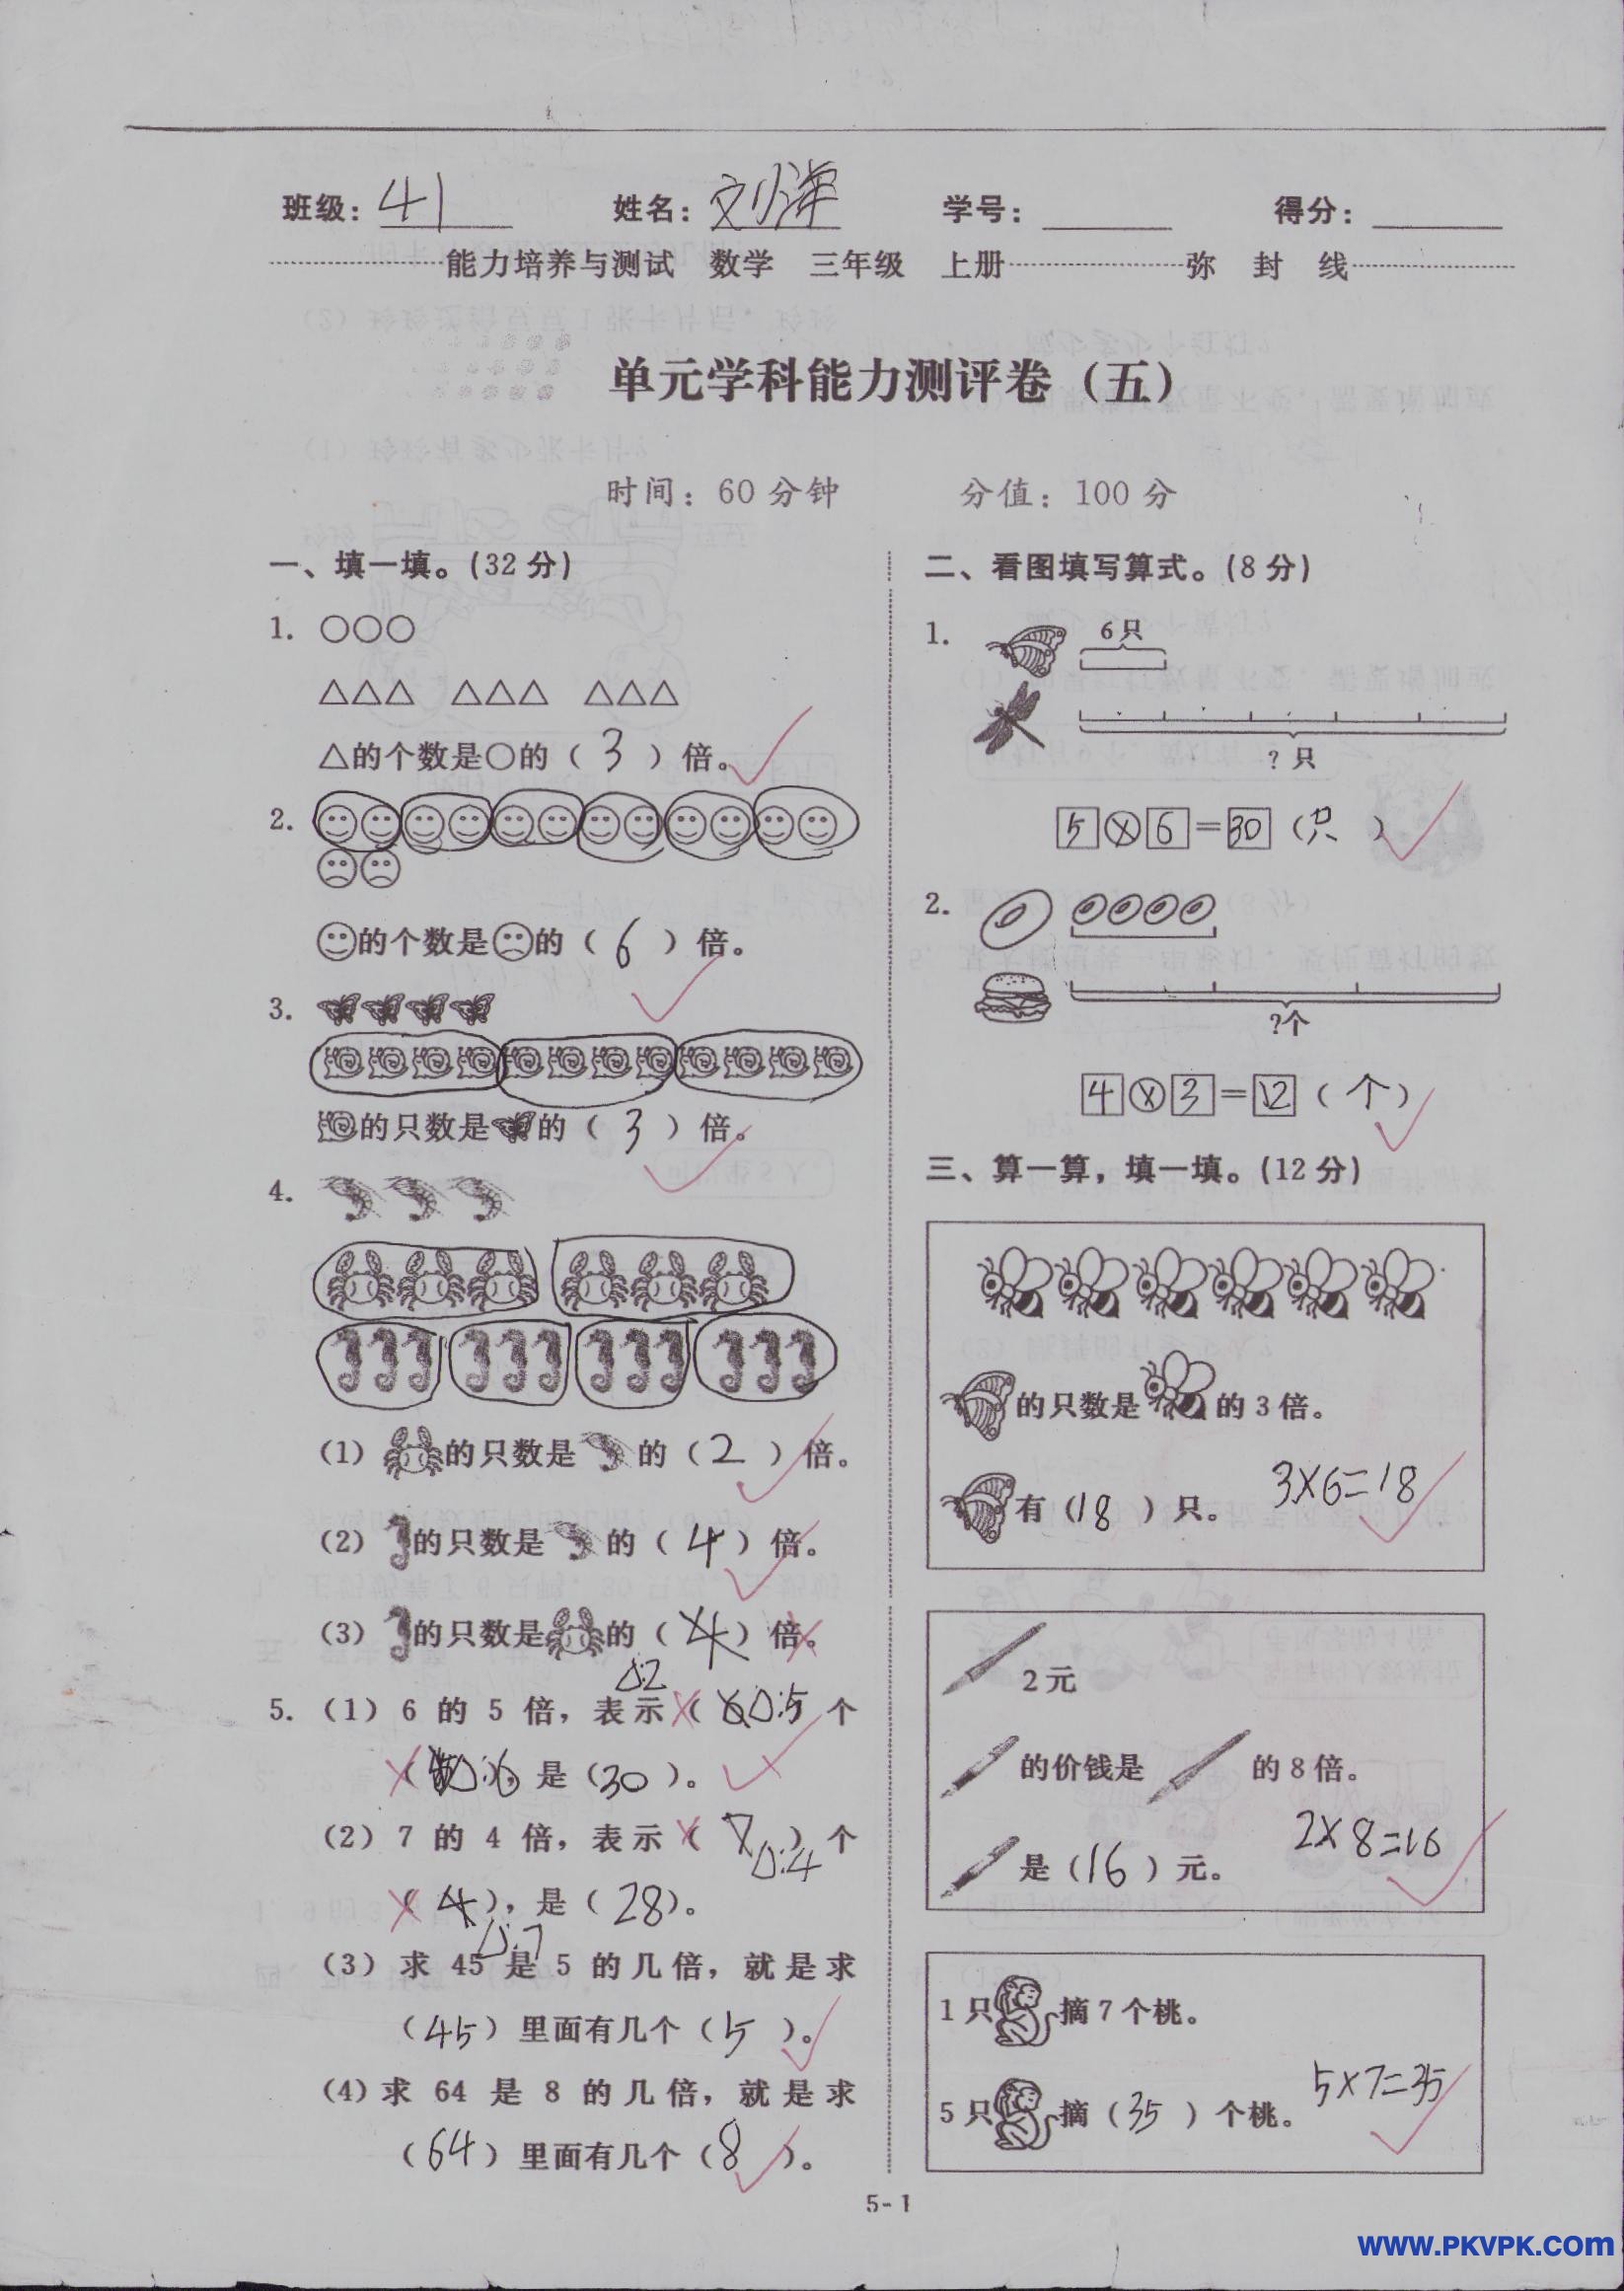 班级：41 姓名：刘洋 学号： 得分：
能力培养与测试 数学 三年级 上册 弥 封 线
单元学科能力测评卷（五）
时间：60分钟 分值：100分
一、填一填。(32分)
1. ○○○
△△△ △△△ △△△
△的个数是○的（3）倍。
2.
的个数是的（6）倍。
3.
的只数是的（3）倍。
4.
(1) 的只数是的（2）倍。
(2) 的只数是的（4）倍。
(3) 的只数是的（4）倍。
△:2
5.（1）6 的 5 倍，表示（ △:5 个
（ △:6 ），是（30）。
（2）7 的 4 倍，表示（7）个
△:4
（4），是（28）。
△:7
（3）求 45 是 5 的几倍，就是求
（45）里面有几个（5）。
(4)求 64 是 8 的几倍，就是求
（64）里面有几个（8）。
二、看图填写算式。(8分)
1. 6只
? 只
5×6=30（只）
2.
?个
4×3=12（个）
三、算一算，填一填。(12分)
的只数是的3倍。
有（18）只。 3×6=18
2元
的价钱是的8倍。
是（16）元。 2×8=16
1只摘7个桃。
5只摘（35）个桃。 5×7=35
5-1
www.PKVPK.com